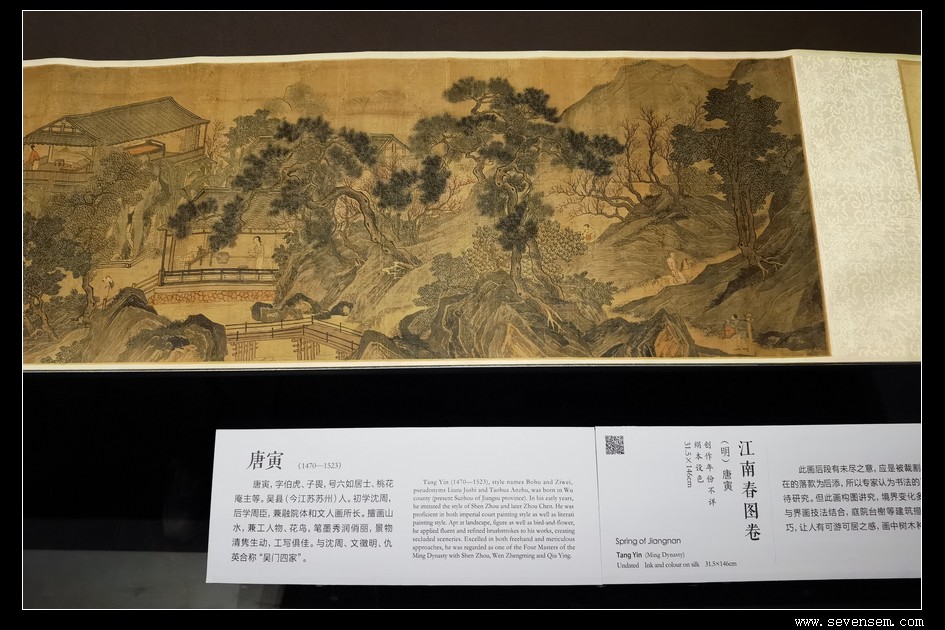 唐寅 (1470—1523)
唐寅，字伯虎、子畏，号六如居士、桃花
庵主等，吴县（今江苏苏州）人，初学沈周，
后学周臣，兼融院体和文人画所长，擅画山
水，兼工人物、花鸟，笔墨秀润俏丽，景物
清隽生动，工写俱佳。与沈周、文徵明、仇
英合称“吴门四家”。
Tang Yin (1470—1523), style names Bohu and Ziwei,
pseudonyms Liuru Jushi and Taohua Anzhu, was born in Wu
county (present Suzhou of Jiangsu province). In his early years,
he imitated the style of Shen Zhou and later Zhou Chen. He was
proficient in both imperial court painting style as well as literati
painting style. Apt at landscape, figure as well as bird-and-flower,
he applied fluent and refined brushstrokes to his works, creating
secluded sceneries. Excelled in both freehand and meticulous
approaches, he was regarded as one of the Four Masters of the
Ming Dynasty with Shen Zhou, Wen Zhengming and Qiu Ying.
江南春图卷
（明）唐寅
创作年份不详
绢本设色
31.5×146cm
Spring of Jiangnan
Tang Yin (Ming Dynasty)
Undated Ink and colour on silk 31.5×146cm
此画后段有未尽之意，应是被裁割
在的落款为后添，所以专家认为书法的
待研究。但此画构图讲究，境界变化多
与界画技法结合，庭院台榭等建筑描
巧，让人有可游可居之感，画中树木
www.sevensem.com